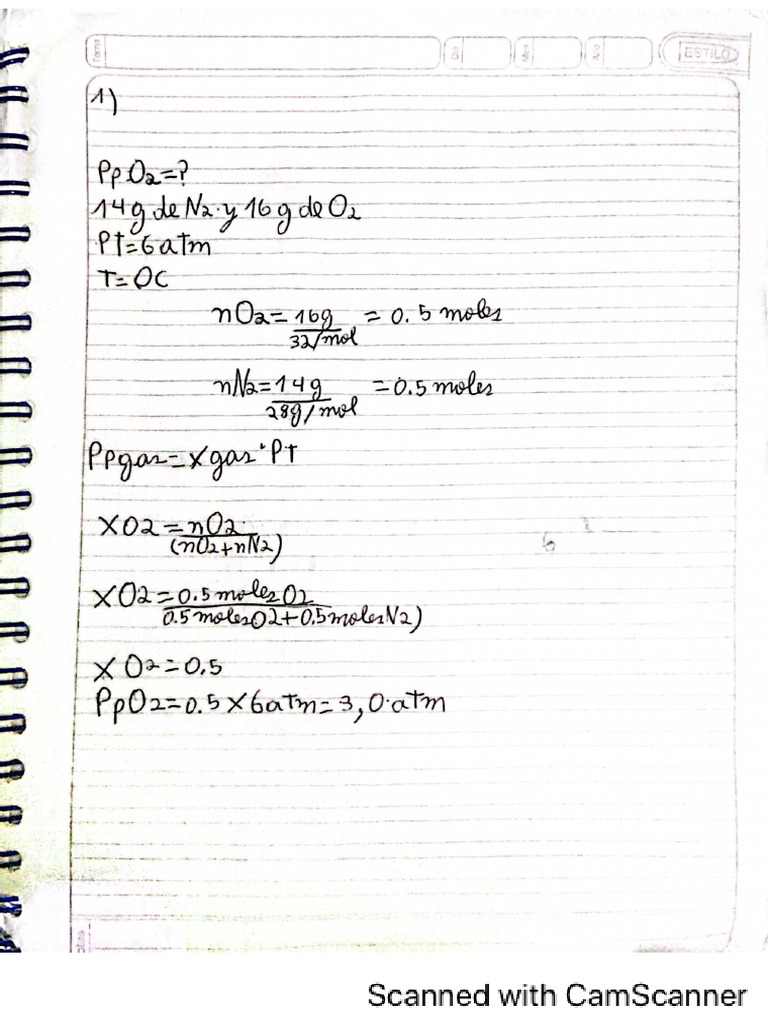 Tema
Día
Mes
Año
ESTILO
1)
PpO2=?
14g de N2 y 16g de O2
Pt=6atm
T=0C
nO2=16g = 0.5 moles
32/mol
nN2=14g =0.5 moles
28g/mol
Ppgas=xgas·Pt
XO2=nO2
(nO2+nN2)
XO2=0.5molesO2
0.5molesO2+0.5molesN2)
XO2=0,5
PpO2=0.5X6atm=3,0atm
Scanned with CamScanner